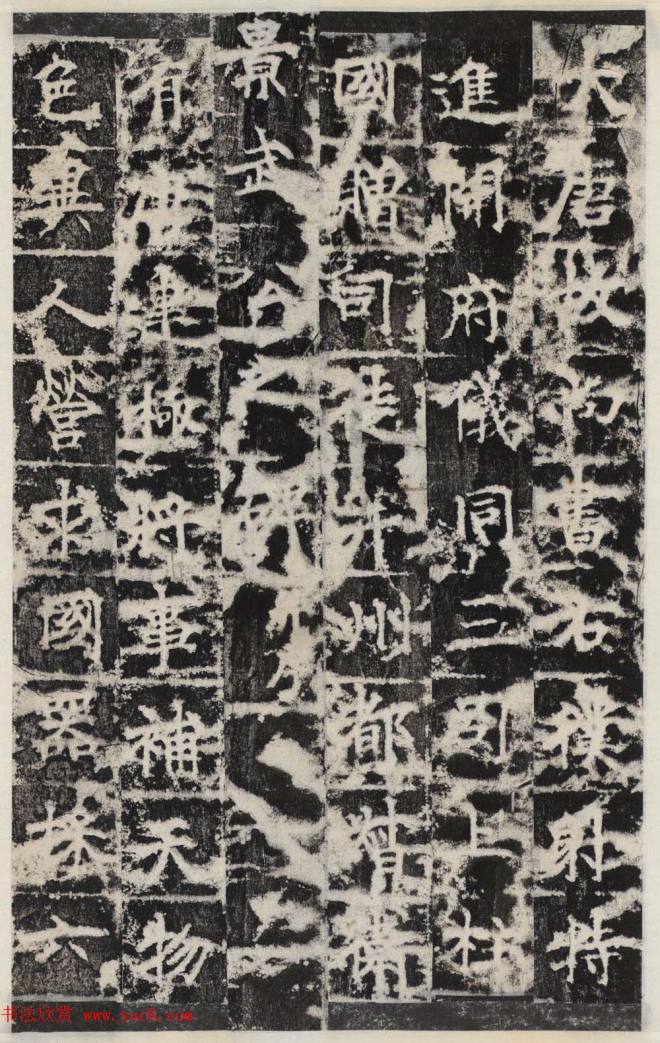 大唐故尚書右僕射特
進開府儀同三司上柱
國贈司徒并州都督衛
景武公之碑
極將事補天物
色異人營求國器採六
书法欣赏 www.yac8.com